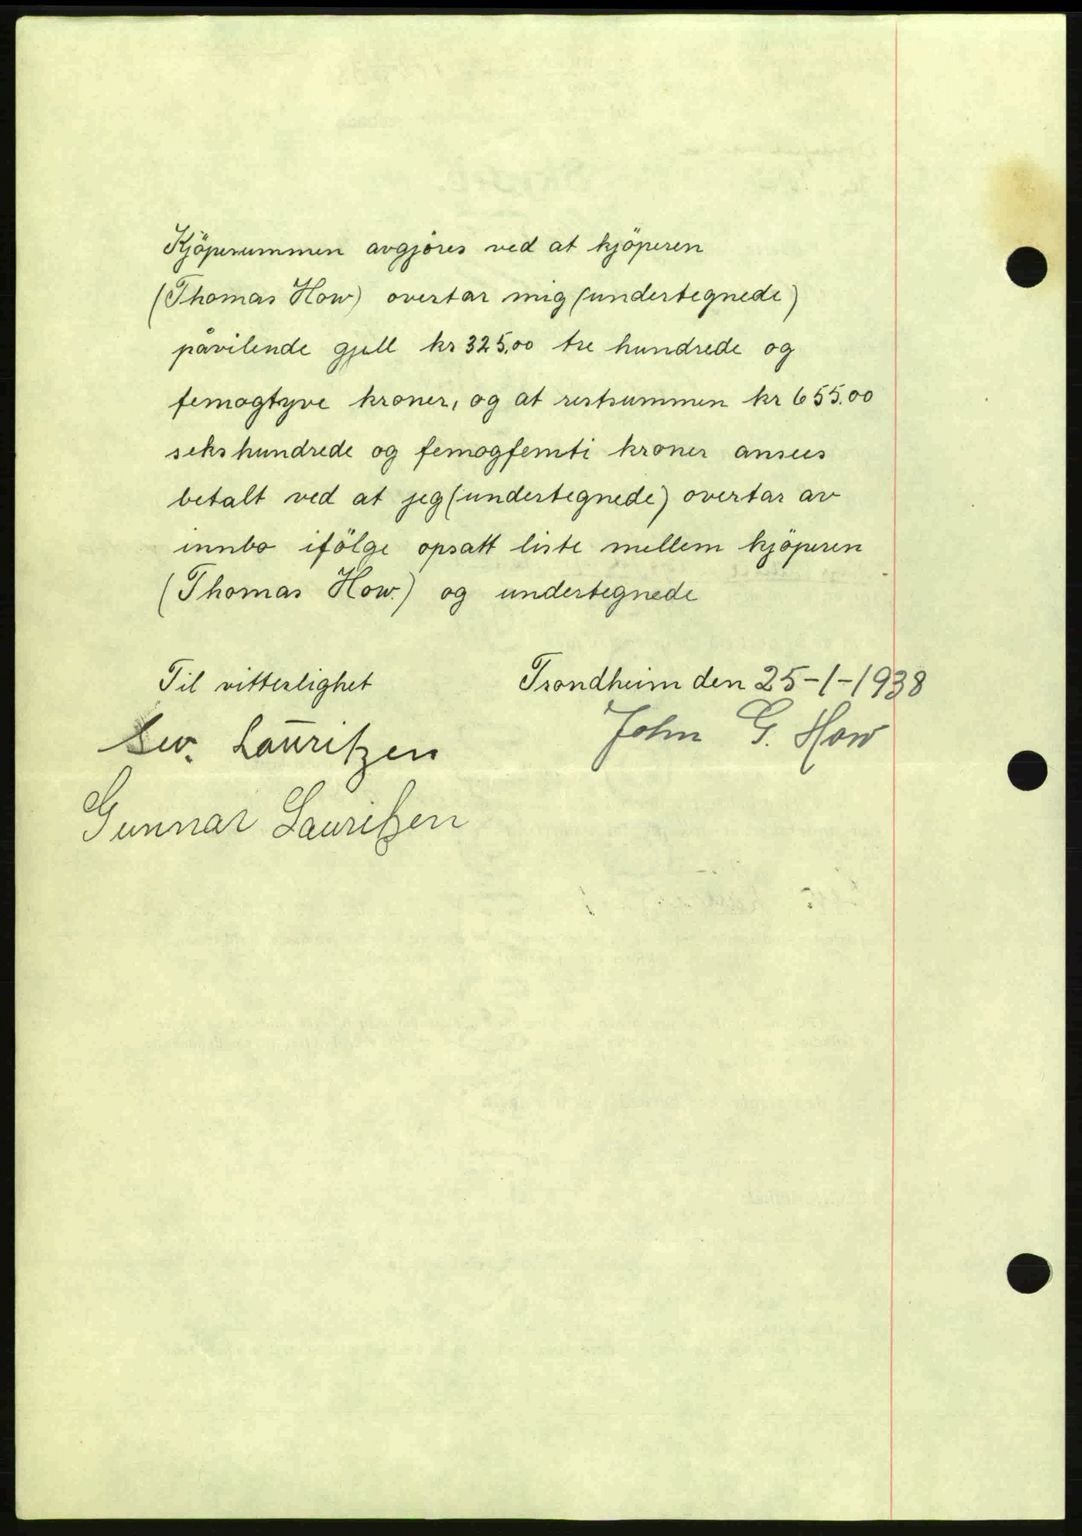 Kjöpesummen avgjöres ved at kjöperen
(Thomas How) overtar mig (undertegnede)
påvilende gjell kr 325,00 tre hundrede og
femogtyve kroner, og at restsummen kr 655.00
sekshundrede og femogfemti kroner ansees
betalt ved at jeg (undertegnede) overtar av
innbo ifölge opsatt liste mellem kjöperen
(Thomas How.) og undertegnede
Til vitterlighet
Trondheim den 25-1-1938
Lauritzen
John G. How
Gunnar Lauritzen